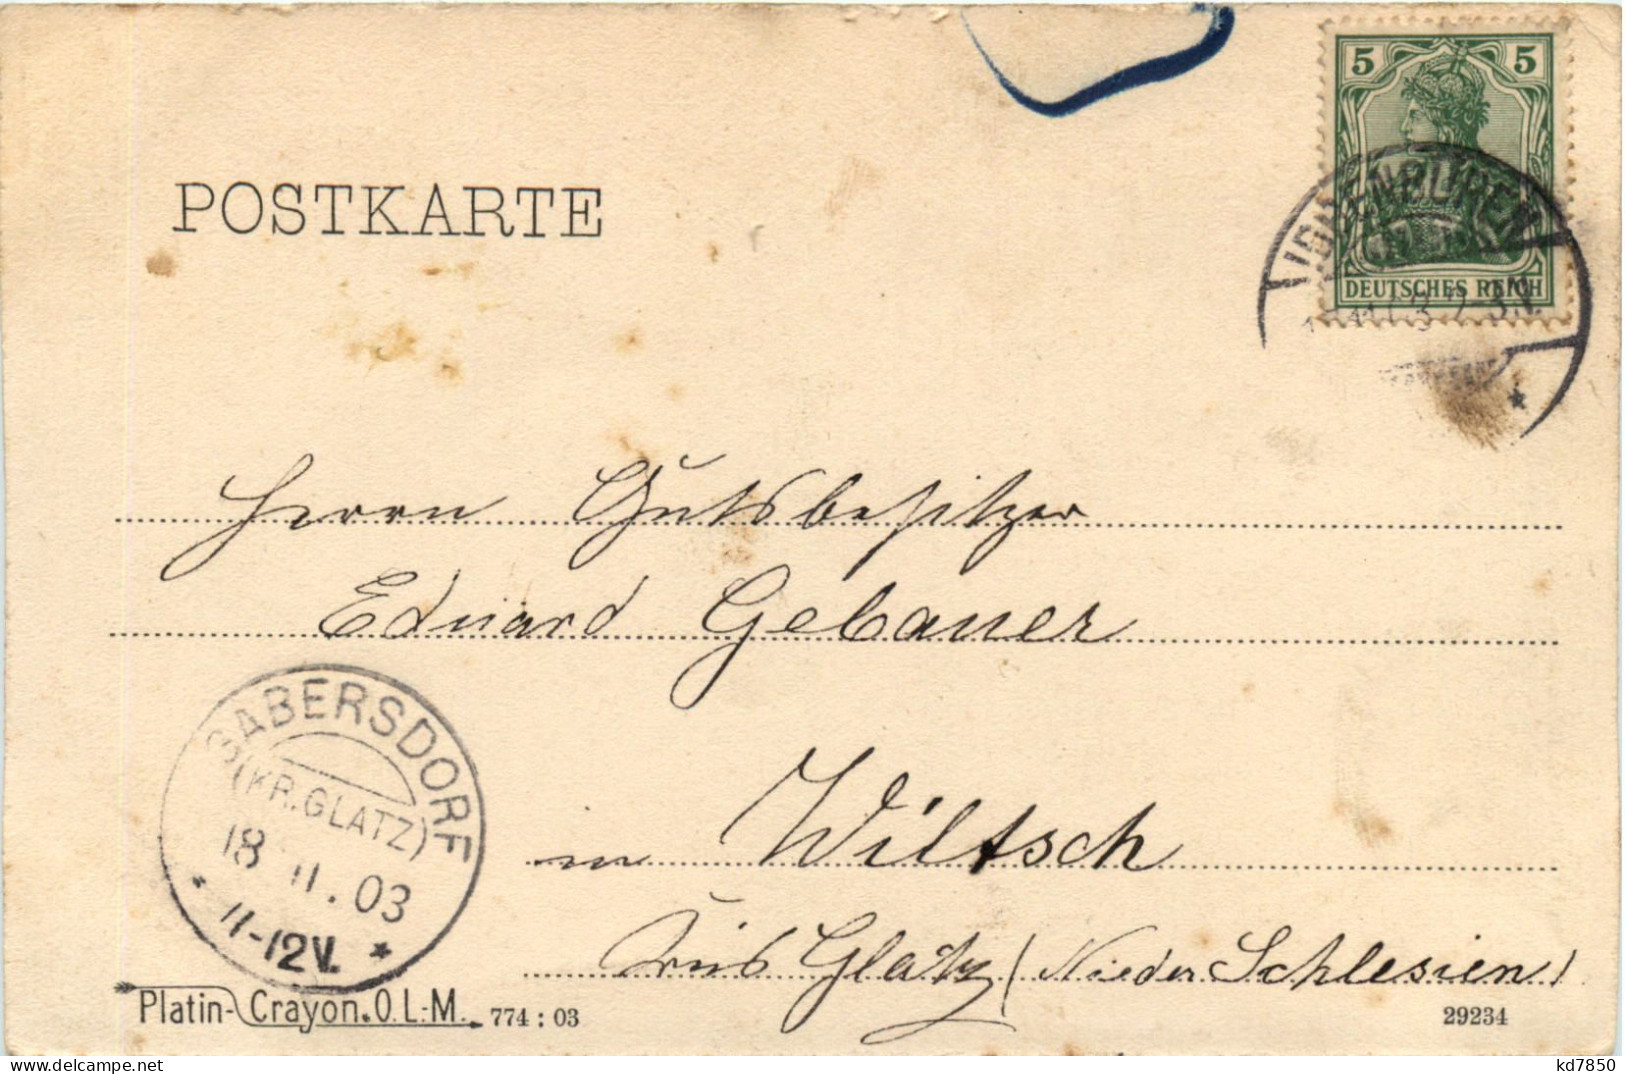 5 5
DEUTSCHES REICH
IBBENBÜREN
2-3N.
POSTKARTE
Herrn Gutsbesitzer
Eduard Gebauer
in Wiltsch
Kreis Glatz (Nieder Schlesien)
GABERSDORF
(KR. GLATZ)
18 11. 03
11-12V.
Platin-Crayon. O.L-M. 774 : 03
29234
delcampe.net
kd7850